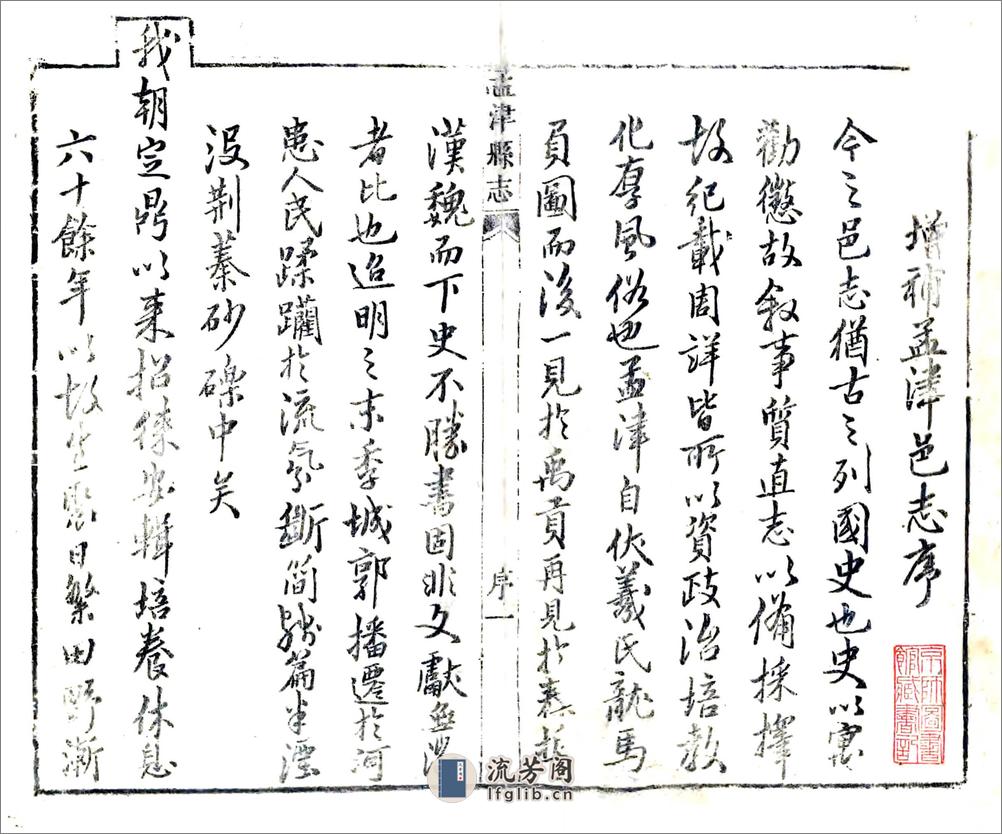 增補孟津邑志序
今之邑志猶古之列國史也史以寓
勸懲故叙事質直志以備採擇
故紀載周詳皆所以資政治培教
化厚風俗也孟津自伏羲氏龍馬
負圖而後一見於禹貢再見於泰誓
漢魏而下史不勝書固非文獻無徵
者比也迨明之末季城郭播遷於河
患人民蹂躪於流氛斷簡殘篇半湮
沒荆蓁砂礫中矣
我朝定鼎以來招徠安輯培養休息
六十餘年以故生齒日繁田野漸
孟津縣志
序一
京師圖書館藏書記
流芳阁
lfglib.cn